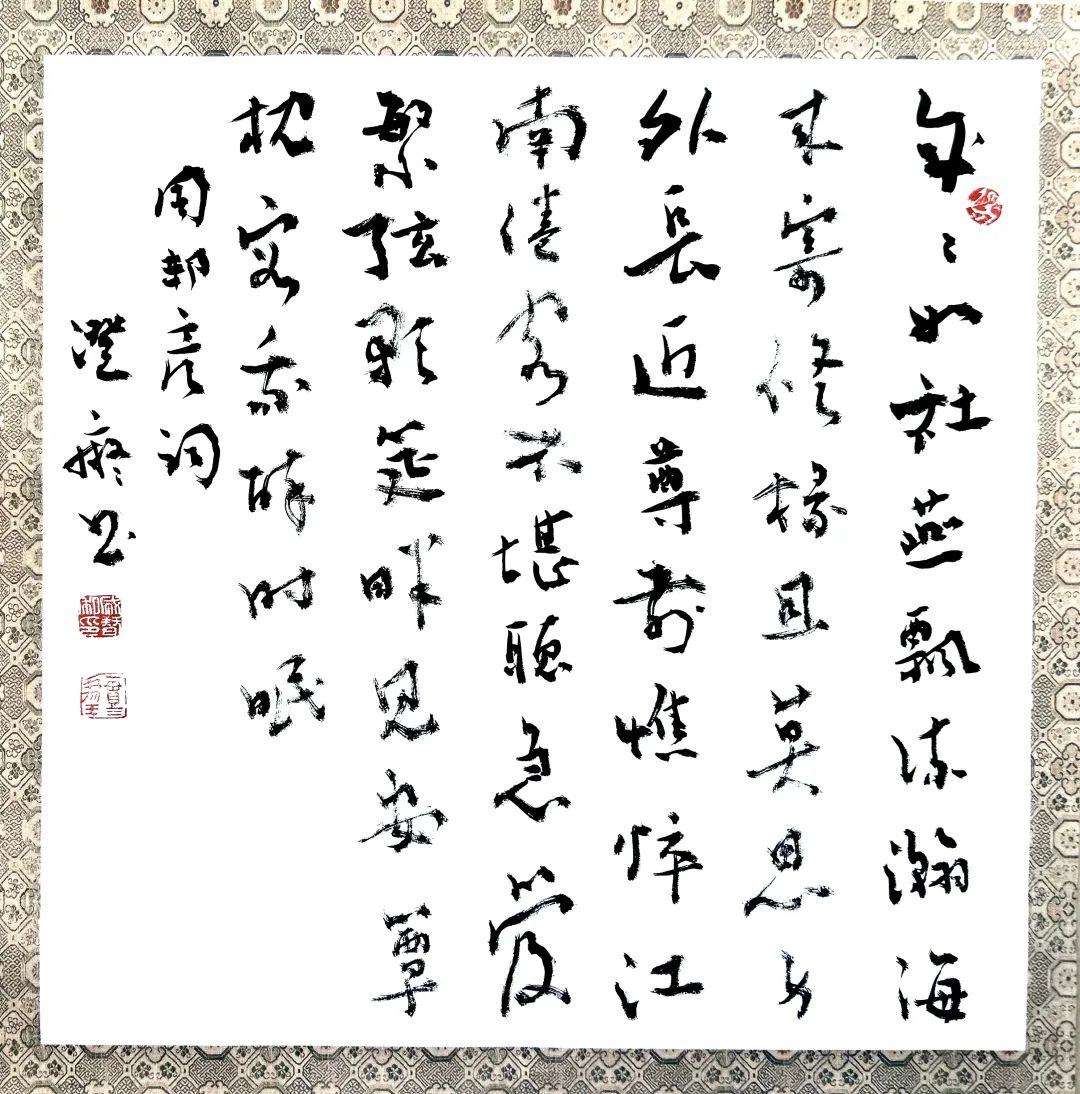 年々如社燕飄流瀚海
来寄修椽且莫思身
外長近尊前憔悴江
南倦客不堪聽急管
繁弦歌筵畔見安簟
枕容我醉时眠
周邦彦词
澄癡书